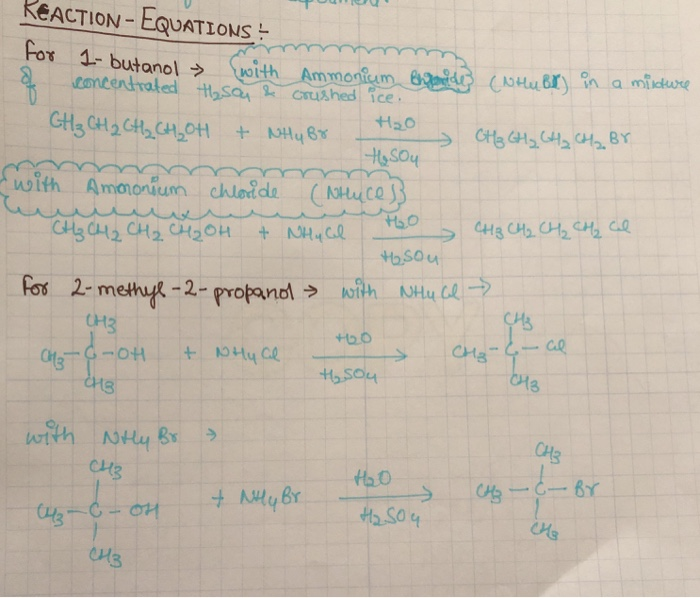 REACTION - EQUATIONS :-
For 1- butanol → with Ammonium (NH4Br) in a mixture
of concentrated H2SO4 & crushed ice.
CH3CH2CH2CH2OH + NH4Br H2O → H2SO4 CH3CH2CH2CH2Br
with Ammonium chloride (NH4Cl)
CH3CH2CH2CH2OH + NH4Cl H2O → H2SO4 CH3CH2CH2CH2Cl
For 2-methyl-2-propanol → with NH4Cl →
CH3 CH3
CH3-C-OH + NH4Cl H2O → H2SO4 CH3-C-Cl
CH3 CH3
with NH4Br →
CH3 CH3
CH3-C-OH + NH4Br H2O → H2SO4 CH3-C-Br
CH3 CH3